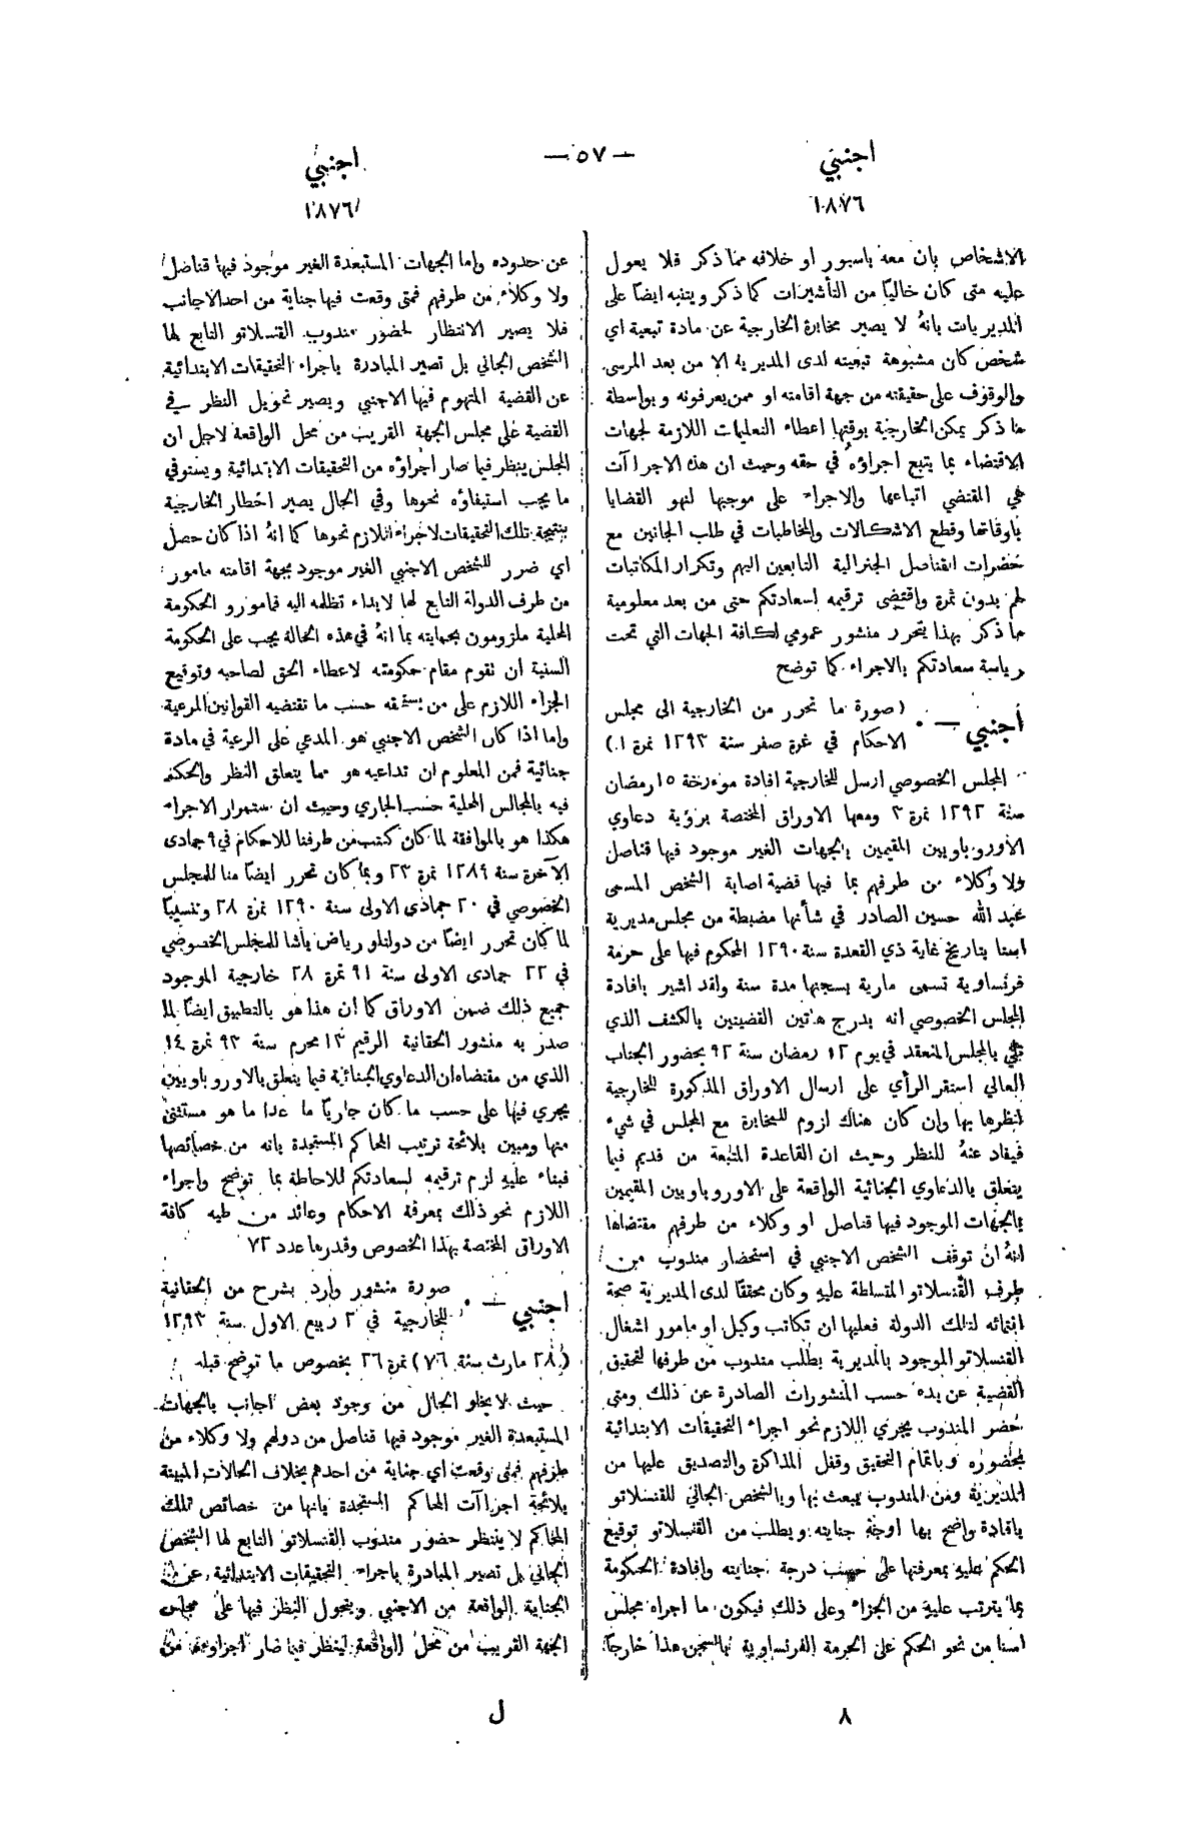 اجنبي
١٨٧٦
— ٥٧ —
اجنبي
١٨٧٦
الاشخاص بان معه باسبور او خلافه مما ذكر فلا يعول
عليه متى كان خاليًا من التأشيرات كما ذكر ويتنبه ايضًا على
المديريات بانهُ لا يصير مخابرة الخارجية عن مادة تبعية اي
شخص كان مشبوهة تبعيته لدى المديرية الا من بعد المرسى
والوقوف على حقيقته من جهة اقامته او ممن يعرفونه وبواسطة
ما ذكر يمكن الخارجية بوقتها اعطاء التعليمات اللازمة لجهات
الاقتضاء بما يتبع اجراؤهُ في حقه وحيث ان هذه الاجراآت
هي المقتضي اتباعها والاجراء على موجبها لنهو القضايا
باوقاتها وقطع الاشكالات والمخاطبات في طلب الجانين مع
حضرات القناصل الجنرالية التابعين اليهم وتكرار المكاتبات
لهم بدون ثمرة واقتضى ترقيمه لسعادتكم حتى من بعد معلومية
ما ذكر بهذا يتحرر منشور عمومي لكافة الجهات التي تحت
رياسة سعادتكم بالاجراء كما توضح
اجنبي — . (صورة ما تحرر من الخارجية الى مجلس
الاحكام في غرة صفر سنة ١٢٩٣ نمرة ١)
المجلس الخصوصي ارسل للخارجية افادة مؤرخة ١٥ رمضان
سنة ١٢٩٢ نمرة ٣ ومعها الاوراق المختصة برؤية دعاوي
الاوروباويين المقيمين بالجهات الغير موجود فيها قناصل
ولا وكلاء من طرفهم بما فيها قضية اصابة الشخص المسمى
عبد الله حسين الصادر في شأنها مضبطة من مجلس مديرية
اسنا بتاريخ غاية ذي القعدة سنة ١٢٩٠ المحكوم فيها على حرمة
فرنساوية تسمى مارية بسجنها مدة سنة ولقد اشير بافادة
المجلس الخصوصي انه بدرج هتين القضيتين بالكشف الذي
تلي بالمجلس المنعقد في يوم ١٢ رمضان سنة ٩٢ بحضور الجناب
العالي استقر الرأي على ارسال الاوراق المذكورة للخارجية
لنظرها بها وان كان هناك لزوم للمخابرة مع المجلس في شيء
فيفاد عنهُ للنظر وحيث ان القاعدة المتبعة من قديم فيما
يتعلق بالدعاوي الجنائية الواقعة على الاوروباويين المقيمين
بالجهات الموجود فيها قناصل او وكلاء من طرفهم مقتضاها
انهُ ان توقف الشخص الاجنبي في استحضار مندوب من
طرف القنسلاتو المتسلطة عليه وكان محققًا لدى المديرية صحة
انتمائه لتلك الدولة فعليها ان تكاتب وكيل او مامور اشغال
القنسلاتو الموجود بالمديرية بطلب مندوب من طرفها لتحقيق
القضية عن يده حسب المنشورات الصادرة عن ذلك ومتى
حضر المندوب يجري اللازم نحو اجراء التحقيقات الابتدائية
بحضوره وباتمام التحقيق وقفل المذاكرة والتصديق عليها من
المديرية ومن المندوب يبعث بها وبالشخص الجاني للقنسلاتو
بافادة واضح بها اوجه جنايته ويطلب من القنسلاتو توقيع
الحكم عليه بمعرفتها على حسب درجة جنايته وافادة الحكومة
بما يترتب عليه من الجزاء وعلى ذلك فيكون ما اجراه مجلس
اسنا من نحو الحكم على الحرمة الفرنساوية بالسجن هذا خارجًا
٨
عن حدوده واما الجهات المستبعدة الغير موجود فيها قناصل
ولا وكلاء من طرفهم فمتى وقعت فيها جناية من احد الاجانب
فلا يصير الانتظار لحضور مندوب القنسلاتو التابع لها
الشخص الجاني بل تصير المبادرة باجراء التحقيقات الابتدائية
عن القضية المتهوم فيها الاجنبي ويصير تحويل النظر في
القضية على مجلس الجهة القريب من محل الواقعة لاجل ان
المجلس ينظر فيما صار اجراؤه من التحقيقات الابتدائية ويستوفي
ما يجب استيفاؤه نحوها وفي الحال يصير اخطار الخارجية
بنتيجة تلك التحقيقات لاجراء اللازم نحوها كما انهُ اذا كان حصل
اي ضرر للشخص الاجنبي الغير موجود بجهة اقامته مامور
من طرف الدولة التابع لها لابداء تظلمه اليه فمامورو الحكومة
المحلية ملزومون بحمايته بما انهُ في هذه الحالة يجب على الحكومة
السنية ان تقوم مقام حكومته لاعطاء الحق لصاحبه وتوقيع
الجزاء اللازم على من يستحقه حسب ما تقتضيه القوانين المرعية
واما اذا كان الشخص الاجنبي هو المدعي على الرعية في مادة
جنائية فمن المعلوم ان تداعيه هو مما يتعلق النظر والحكم
فيه بالمجالس المحلية حسب الجاري وحيث ان استمرار الاجراء
هكذا هو بالموافقة لما كان كتب من طرفنا للاحكام في ٩ جمادى
الآخرة سنة ١٢٨٤ نمرة ٢٣ وبما كان تحرر ايضًا منا للمجلس
الخصوصي في ٢٠ جمادى الاولى سنة ١٢٩٠ نمرة ٢٨ وتنسيبًا
لما كان تحرر ايضًا من دولتلو رياض باشا للمجلس الخصوصي
في ٢٢ جمادى الاولى سنة ٩١ نمرة ٢٨ خارجية الموجود
جميع ذلك ضمن الاوراق كما ان هذا هو بالتطبيق ايضًا لما
صدر به منشور الحقانية الرقيم ١٣ محرم سنة ٩٣ نمرة ١٤
الذي من مقتضاه ان الدعاوي الجنائية فيما يتعلق بالاوروباويين
يجري فيها على حسب ما كان جاريًا ما عدا ما هو مستثنى
منها ومبين بلائحة ترتيب المحاكم المستجدة بانه من خصائصها
فبناء عليه لزم ترقيمه لسعادتكم للاحاطة بما توضح واجراء
اللازم نحو ذلك بمعرفة الاحكام وعائد من طيه كافة
الاوراق المختصة بهذا الخصوص وقدرها عدد ٧٢
اجنبي — . صورة منشور وارد بشرح من الحقانية
للخارجية في ٢ ربيع الاول سنة ١٢٩٣
(٢٨ مارث سنة ٧٦) نمرة ٢٦ بخصوص ما توضح قبله
حيث لا يخلو الحال من وجود بعض اجانب بالجهات
المستبعدة الغير موجود فيها قناصل من دولهم ولا وكلاء من
طرفهم فمتى وقعت اي جناية من احدهم بخلاف الحالات المبينة
بلائحة اجراآت المحاكم المستجدة بانها من خصائص تلك
المحاكم لا ينتظر حضور مندوب القنسلاتو التابع لها الشخص
الجاني بل تصير المبادرة باجراء التحقيقات الابتدائية عن
الجناية الواقعة من الاجنبي ويتحول النظر فيها على مجلس
الجهة القريب من محل الواقعة لينظر فيما صار اجراؤه من
ل